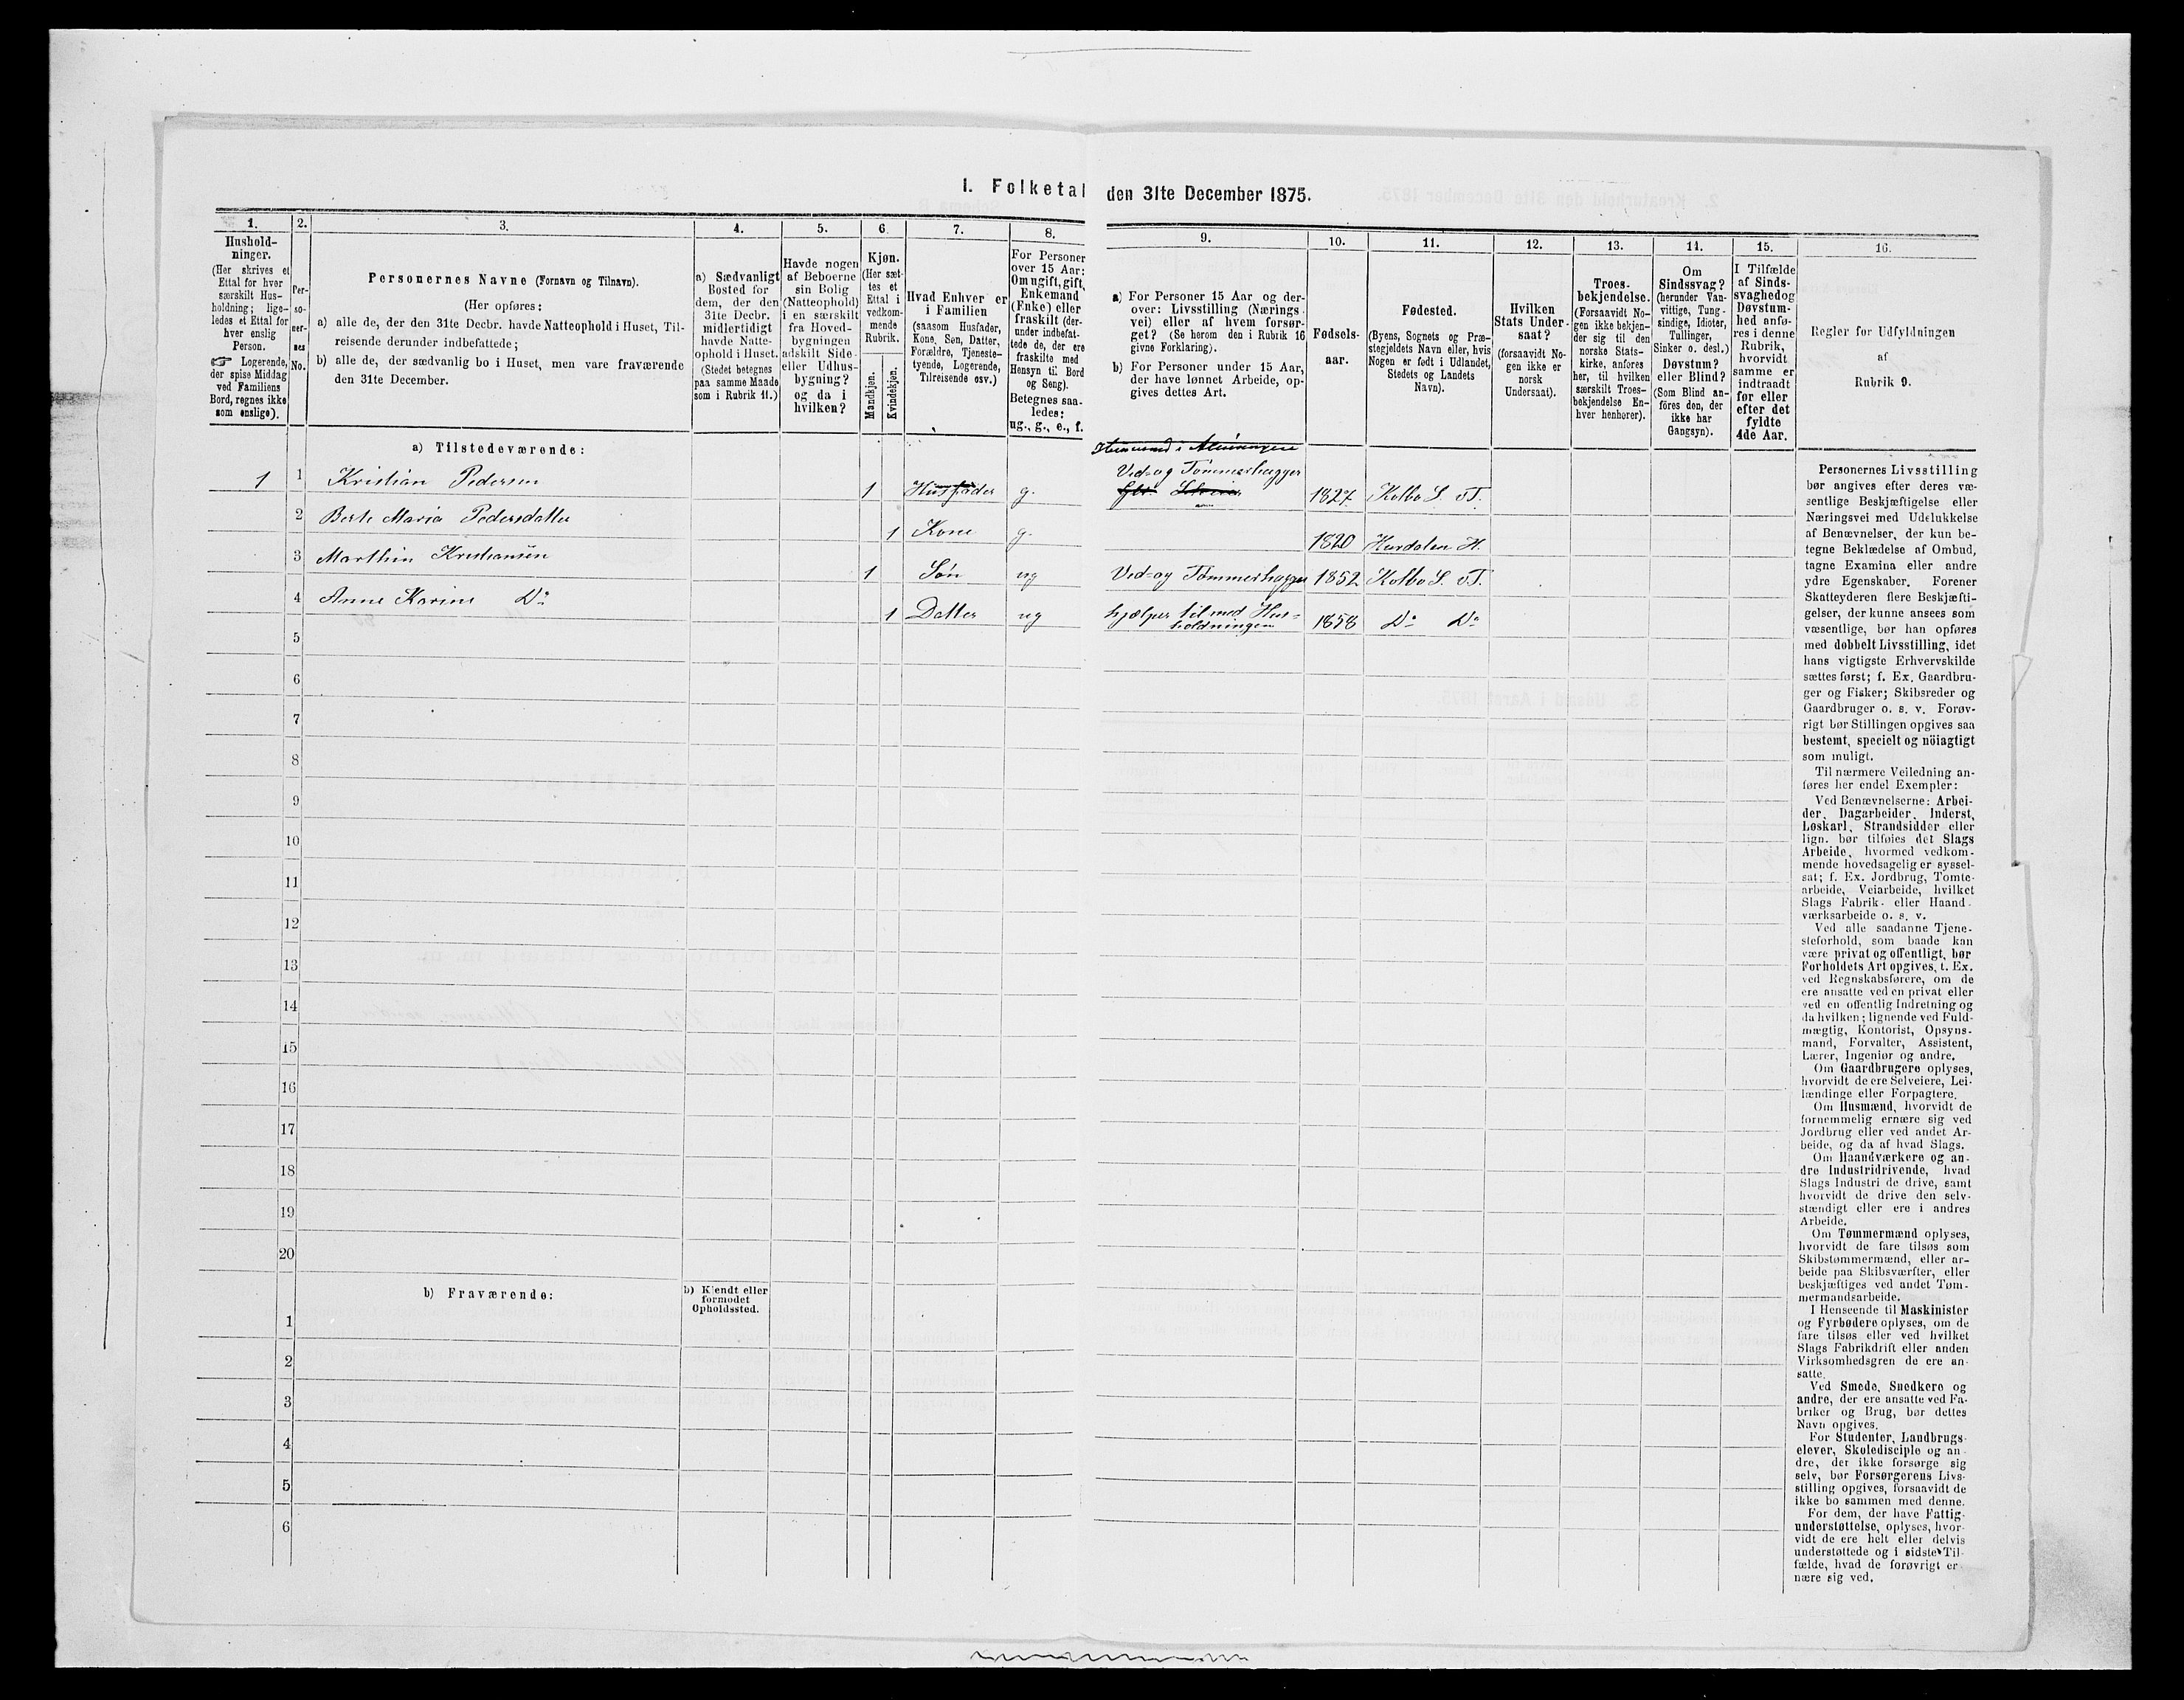 I. Folketal den 31te December 1875.
1.
Hushold-
ninger.
(Her skrives et
Ettal for hver
særskilt Hus-
holdning; lige-
ledes et Ettal for
hver enslig
Person.
☞ Logerende,
der spise Middag
ved Familiens
Bord, regnes ikke
som enslige).
2.
Per-
so-
ner-
nes
No.
3.
Personernes Navne (Fornavn og Tilnavn).
(Her opføres:
a) alle de, der den 31te Decbr. havde Natteophold i Huset, Til-
reisende derunder indbefattede;
b) alle de, der sædvanlig bo i Huset, men vare fraværende
den 31te December.
4.
a) Sædvanligt
Bosted for
dem, der den
31te Decbr.
midlertidigt
havde Natte-
ophold i Huset.
(Stedet betegnes
paa samme Maade
som i Rubrik 11.)
5.
Havde nogen
af Beboerne
sin Bolig
(Natteophold)
i en særskilt
fra Hoved-
bygningen
adskilt Side-
eller Udhus-
bygning?
og da i
hvilken?
6.
Kjøn.
(Her sæt-
tes et
Ettal i
vedkom-
mende
Rubrik.
Mandkjøn.
Kvindekjøn.
7.
Hvad Enhver er
i Familien
(saasom Husfader,
Kone, Søn, Datter,
Forældre, Tjeneste-
tyende, Logerende,
Tilreisende osv.)
8.
For Personer
over 15 Aar:
Om ugift, gift,
Enkemand
(Enke) eller
fraskilt (der-
under indbefat-
tede de, der ere
fraskilte med
Hensyn til Bord
og Seng).
Betegnes saa-
ledes:
ug., g., e., f.
9.
a) For Personer 15 Aar og der-
over: Livsstilling (Nærings-
vei) eller af hvem forsør-
get? (Se herom den i Rubrik 16
givne Forklaring).
b) For Personer under 15 Aar,
der have lønnet Arbeide, op-
gives dettes Art.
10.
Fødsels-
aar.
11.
Fødested.
(Byens, Sognets og Præ-
stegjeldets Navn eller, hvis
Nogen er født i Udlandet,
Stedets og Landets
Navn).
12.
Hvilken
Stats Under-
saat?
(forsaavidt No-
gen ikke er
norsk
Undersaat).
13.
Troes-
bekjendelse.
(Forsaavidt No-
gen ikke bekjen-
der sig til den
norske Stats-
kirke, anføres
her, til hvilken
særskilt Troes-
bekjendelse En-
hver henhører).
14.
Om
Sindssvag?
(herunder Van-
vittige, Tung-
sindige, Idioter,
Tullinger,
Sinker o. desl.)
Døvstum?
eller Blind?
(Som Blind an-
føres den, der
ikke har
Gangsyn).
15.
I Tilfælde
af Sinds-
svaghed og
Døvstum-
hed anfø-
res i denne
Rubrik,
hvorvidt
samme er
indtraadt
før eller
efter det
fyldte
4de Aar.
16.
Regler for Udfyldningen
af
Rubrik 9.
a) Tilstedeværende:
Ved- og Tømmerhugger
1 1 Kristian Pedersen 1 Husfader g. 1827 Kolbo S. v T.
2 Berte Maria Pedersdatter 1 Kone g. 1820 Hurdalen H.
3 Marthin Kristiansen 1 Søn ug Ved- og Tømmerhugger 1852 Kolbo S. v T.
4 Anne Karine Do 1 Datter ug hjælper til med Hus=
holdningen 1858 Do Do
5
6
7
8
9
10
11
12
13
14
15
16
17
18
19
20
b) Fraværende:
b) Kjendt eller
formodet
Opholdssted.
1
2
3
4
5
6
Personernes Livsstilling
bør angives efter deres væ-
sentlige Beskjæftigelse eller
Næringsvei med Udelukkelse
af Benævnelser, der kun be-
tegne Beklædelse af Ombud,
tagne Examina eller andre
ydre Egenskaber. Forener
Skatteyderen flere Beskjæfti-
gelser, der kunne ansees som
væsentlige, bør han opføres
med dobbelt Livsstilling, idet
hans vigtigste Erhvervskilde
sættes først; f. Ex. Gaardbru-
ger og Fisker; Skibsreder og
Gaardbruger o. s. v. Forøv-
rigt bør Stillingen opgives saa
bestemt, specielt og nöiagtigt
som muligt.
Til nærmere Veiledning an-
føres her endel Exempler:
Ved Benævnelserne: Arbei-
der, Dagarbeider, Inderst,
Løskarl, Strandsidder eller
lign. bør tilføies det Slags
Arbeide, hvormed vedkom-
mende hovedsagelig er syssel-
sat; f. Ex. Jordbrug, Tomte-
arbeide, Veiarbeide, hvilket
Slags Fabrik- eller Haand-
værksarbeide o. s. v.
Ved alle saadanne Tjene-
steforhold, som baade kan
være privat og offentligt, bør
Forholdets Art opgives, t. Ex.
ved Regnskabsførere, om de
ere ansatte ved en privat eller
ved en offentlig Indretning og
da hvilken; lignende ved Fuld-
mægtig, Kontorist, Opsyns-
mand, Forvalter, Assistent,
Lærer, Ingeniør og andre.
Om Gaardbrugere oplyses,
hvorvidt de ere Selveiere, Lei-
lændinge eller Forpagtere.
Om Husmænd, hvorvidt de
fornemmelig ernære sig ved
Jordbrug eller ved andet Ar-
beide, og da af hvad Slags.
Om Haandværkere og an-
dre Industridrivende, hvad
Slags Industri de drive, samt
hvorvidt de drive den selv-
stændigt eller ere i andres
Arbeide.
Om Tømmermænd oplyses,
hvorvidt de fare tilsøs som
Skibstømmermænd, eller ar-
beide paa Skibsværfter, eller
beskjæftiges ved andet Tøm-
mermandsarbeide.
I Henseende til Maskinister
og Fyrbødere oplyses, om de
fare tilsøs eller ved hvilket
Slags Fabrikdrift eller anden
Virksomhedsgren de ere an-
satte.
Ved Smede, Snedkere og
andre, der ere ansatte ved Fa-
briker og Brug, bør dettes
Navn opgives.
For Studenter, Landbrugs-
elever, Skoledisciple og an-
dre, der ikke forsørge sig
selv, bør Forsørgerens Livs-
stilling opgives, forsaavidt de
ikke bo sammen med denne.
For dem, der have Fattig-
understøttelse, oplyses, hvor-
vidt de ere helt eller delvis
understøttede og i sidste Til-
fælde, hvad de forøvrigt er-
nære sig ved.